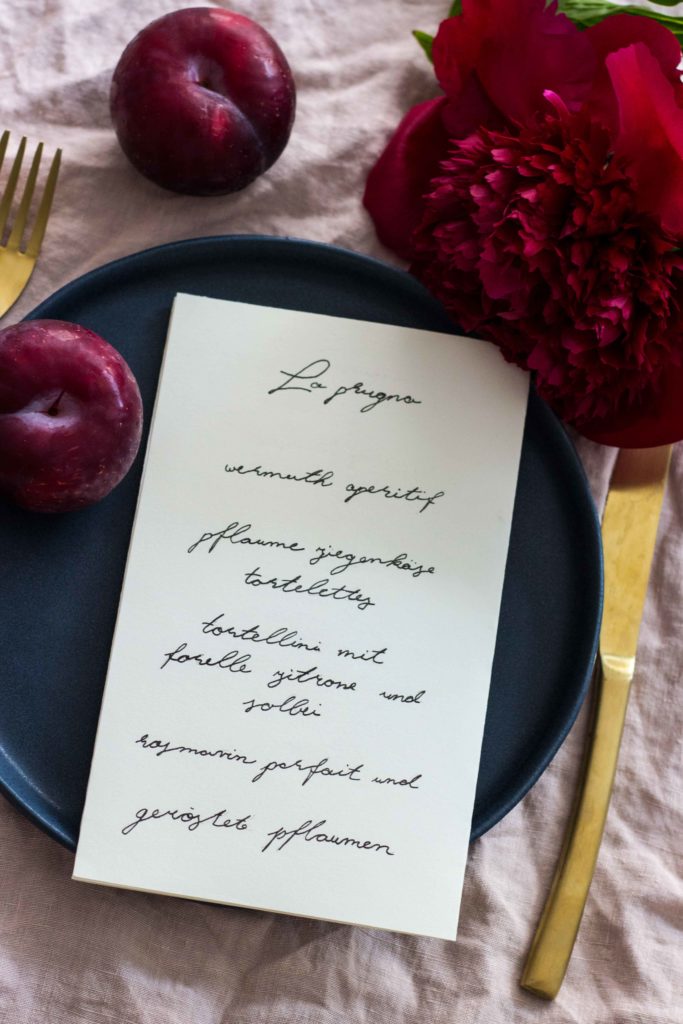 La prugna
wermuth aperitif
pflaume ziegenkäse
tortelettes
tortellini mit
forelle zitrone und
salbei
rosmarin parfait und
geröstete pflaumen